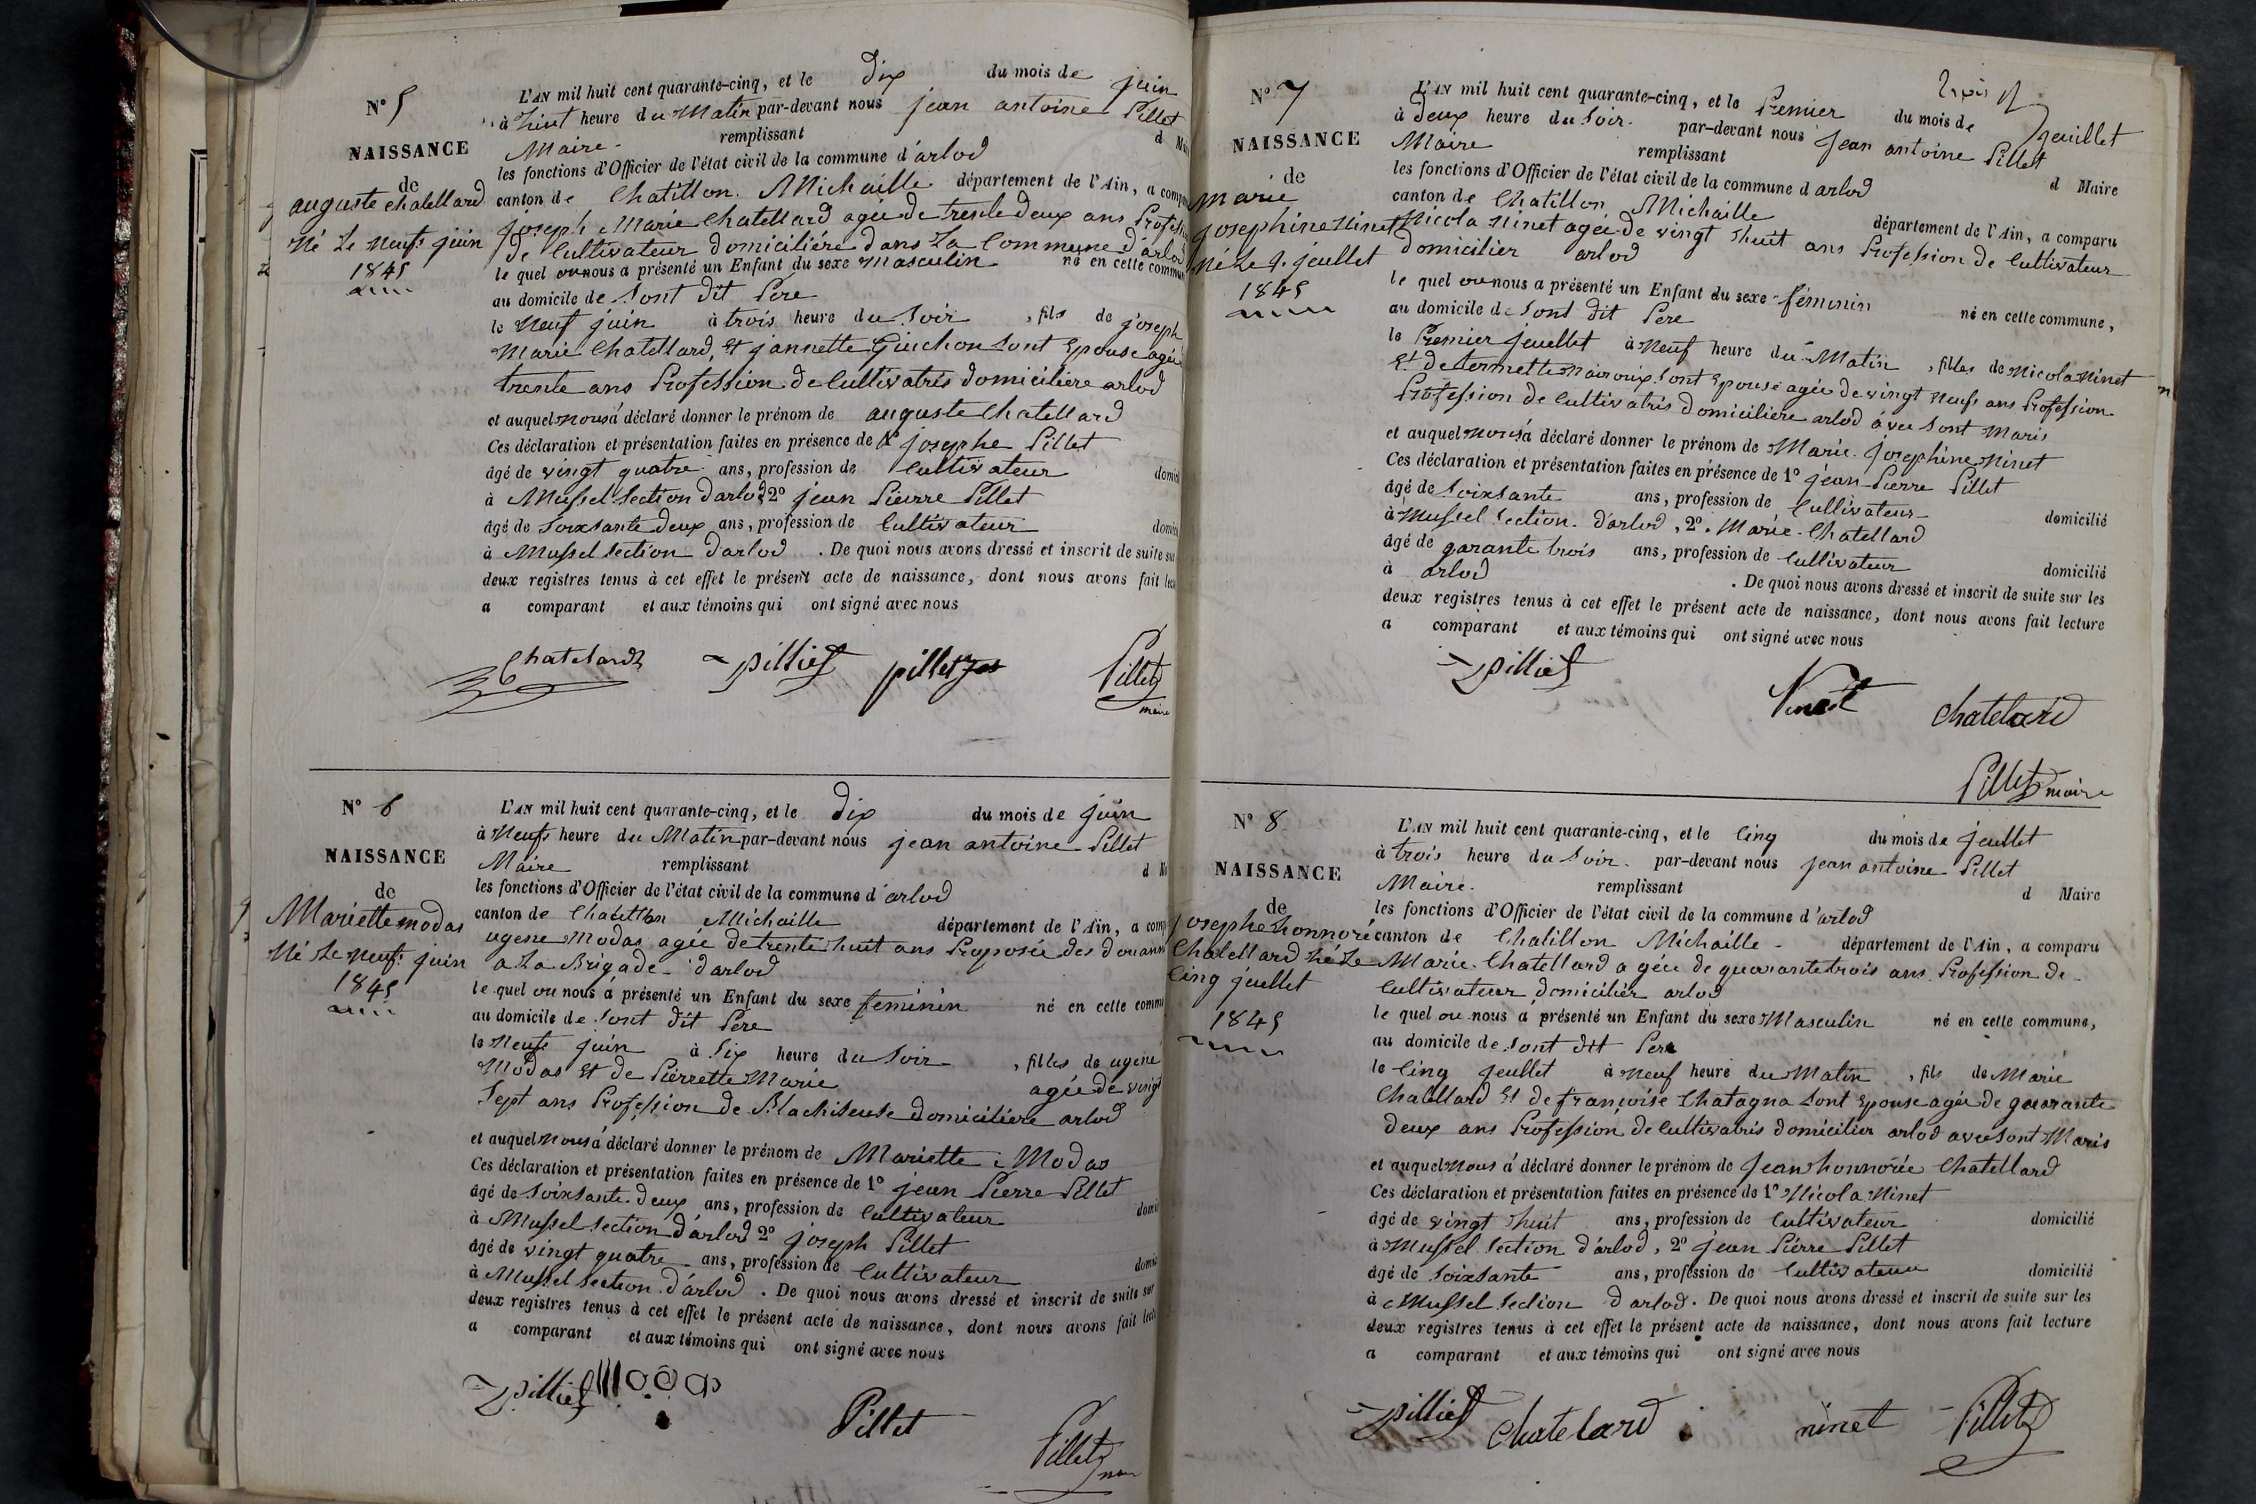 N° 5
NAISSANCE
de
auguste chatellard
Né Le neufs juin
1845
L'AN mil huit cent quarante-cinq, et le dix du mois de juin
à huit heure du Matin par-devant nous jean antoine Pillet
Maire remplissant d Mai
les fonctions d'Officier de l'état civil de la commune d'arlod
canton de Chatillon Michaille département de l'Ain, a compa
joseph Marie Chatellard agée de trente deux ans Profession
de Cultivateur domiciliére dans La Commune d'arlod
le quel ou nous a présenté un Enfant du sexe Masculin né en cette commun
au domicile de Sont dit Pere
le Neuf juin à trois heure du Soir , fils de joseph
Marie Chatellard, Et jannette Guichon Sont Epouse agée
trente ans Profession de Cultivatris domiciliere arlod
et auquel nous a déclaré donner le prénom de auguste Chatellard
Ces déclaration et présentation faites en présence de 1° josephe Pillet
âgé de vingt quatre ans, profession de Cultivateur domici
à Mussel Section d'arlod 2° jean Pierre Pillet
âgé de Soixsante deux ans, profession de Cultivateur domici
à Mussel Section d'arlod . De quoi nous avons dressé et inscrit de suite sur
deux registres tenus à cet effet le présent acte de naissance, dont nous avons fait lec
a comparant et aux témoins qui ont signé avec nous
Chatelard pilliet pillet jos Pillet
maire
N° 6
NAISSANCE
de
Mariette modas
Né Le neufs juin
1845
L'AN mil huit cent quarante-cinq, et le dix du mois de juin
à Neufs heure du Matin par-devant nous jean antoine Pillet
Maire remplissant d M
les fonctions d'Officier de l'état civil de la commune d'arlod
canton de Chatillon Michaille département de l'Ain, a comp
ugene Modas agée de trente huit ans Proposée des douanne
a La Brigade d'arlod
le quel ou nous a présenté un Enfant du sexe feminin né en cette commu
au domicile de Sont dit Pere
le Neufs juin à Six heure du Soir , filles de ugene
Modas Et de Pierrette Marie agée de vingt
Sept ans Profession de Blachiseuse domiciliere arlod
et auquel nous a déclaré donner le prénom de Mariette Modas
Ces déclaration et présentation faites en présence de 1° jean Pierre Pillet
âgé de Soixsante deux ans, profession de Cultivateur domici
à Mussel Section d'arlod 2° joseph Pillet
âgé de vingt quatre ans, profession de Cultivateur domici
à Mussel Section d'arlod . De quoi nous avons dressé et inscrit de suite sur
deux registres tenus à cet effet le présent acte de naissance, dont nous avons fait lectu
a comparant et aux témoins qui ont signé avec nous
pilliet Modas Pillet Pillet
N° 7
NAISSANCE
de
Marie
josephine Ninet
Né Le 1. jeullet
1845
L'AN mil huit cent quarante-cinq, et le Premier du mois de jeuillet
à Deux heure du Soir. par-devant nous jean antoine Pillet
Maire remplissant d Maire
les fonctions d'Officier de l'état civil de la commune d arlod
canton de Chatillon Michaille département de l'Ain, a comparu
Nicola Ninet agée de vingt huit ans Profession de Cultivateur
domicilier arlod
le quel ou nous a présenté un Enfant du sexe féminin né en cette commune,
au domicile de Sont dit Pere
le Premier jeuellet à Neuf heure du Matin , filles de Nicola Ninet
Et de Sont Epouse agée de vingt neufs ans Profession
Profession de Cultivatris domiciliere arlod avec Sont Maris
et auquel nous a déclaré donner le prénom de Marie josephine Ninet
Ces déclaration et présentation faites en présence de 1° jean Pierre Pillet
âgé de Soixsante ans, profession de Cultivateur domicilié
à Mussel Section d'arlod, 2°. Marie Chatellard
âgé de garante trois ans, profession de Cultivateur domicilié
à arlod . De quoi nous avons dressé et inscrit de suite sur les
deux registres tenus à cet effet le présent acte de naissance, dont nous avons fait lecture
a comparant et aux témoins qui ont signé avec nous
pilliet Ninet chatelard
Pillet maire
N° 8
NAISSANCE
de
josephe honnoré
Chatellard né Le
Cinq jeullet
1845
L'AN mil huit cent quarante-cinq, et le Cinq du mois de jeullet
à trois heure du Soir. par-devant nous jean antoine Pillet
Maire. remplissant d Maire
les fonctions d'Officier de l'état civil de la commune d'arlod
canton de Chatillon Michaille département de l'Ain, a comparu
Marie Chatellard agée de quarante trois ans Profession de
Cultivateur domicilier arlod
le quel ou nous a présenté un Enfant du sexe Masculin né en cette commune,
au domicile de Sont dit Pere
le Cinq jeullet à neuf heure du Matin , fils de Marie
Chatellard Et de françoise Chatagna Sont Epouse agée de quarante
deux ans Profession de Cultivatris domicilier arlod avec Sont Maris
et auquel nous a déclaré donner le prénom de jean honnorée Chatellard
Ces déclaration et présentation faites en présence de 1° Nicola Ninet
âgé de vingt huit ans, profession de Cultivateur domicilié
à Mussel Section d'arlod, 2° jean Pierre Pillet
âgé de Soixsante ans, profession de Cultivateur domicilié
à Mussel Section d'arlod. De quoi nous avons dressé et inscrit de suite sur les
deux registres tenus à cet effet le présent acte de naissance, dont nous avons fait lecture
a comparant et aux témoins qui ont signé avec nous
pilliet chatelard ninet Pillet